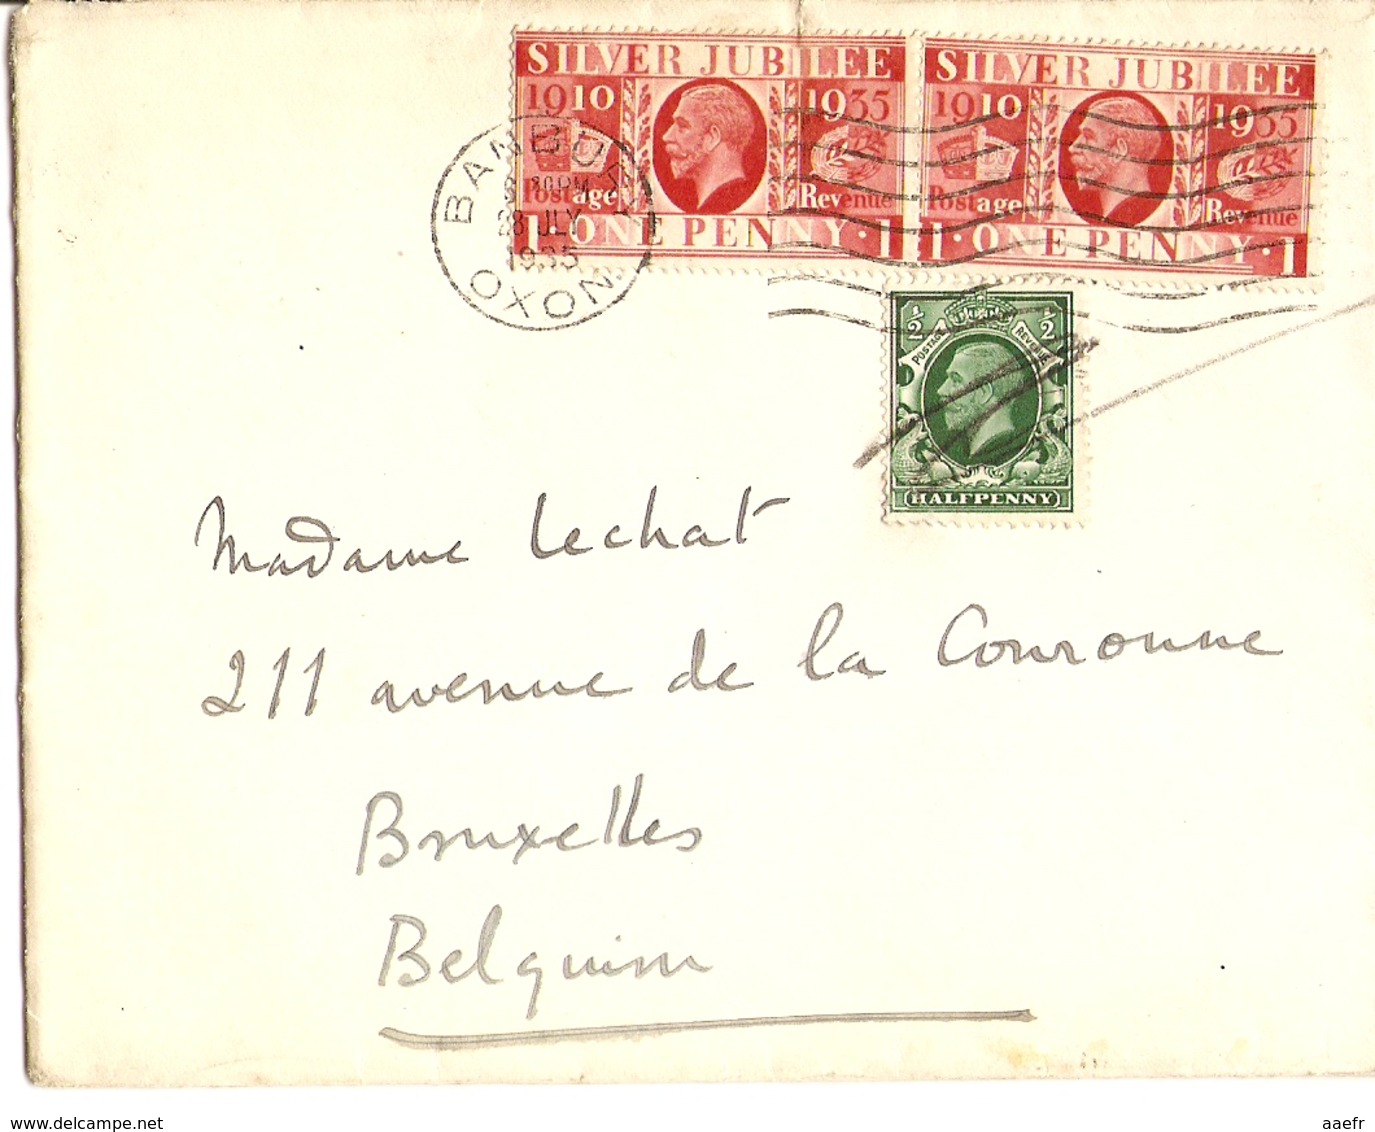 SILVER JUBILEE
1910 1935
Postage Revenue
1 · ONE PENNY · 1
SILVER JUBILEE
1910 1935
Postage Revenue
1 · ONE PENNY · 1
BANBURY
30PM
28 JLY
1935
OXON.
½ ½
POSTAGE REVENUE
HALFPENNY
Madame Lechat
211 avenue de la Couronne
Bruxelles
Belguim
www.delcampe.net
aaefr